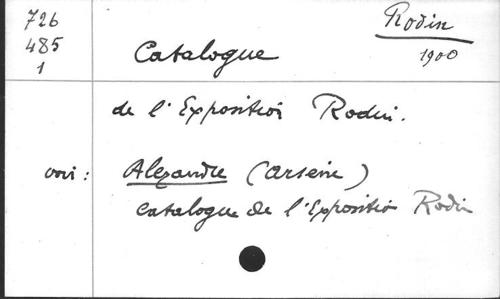 726
485
1
Rodin
1900
Catalogue
de l'Exposition Rodin.
voir : Alexandre (Arsène)
Catalogue de l'Exposition Rodin